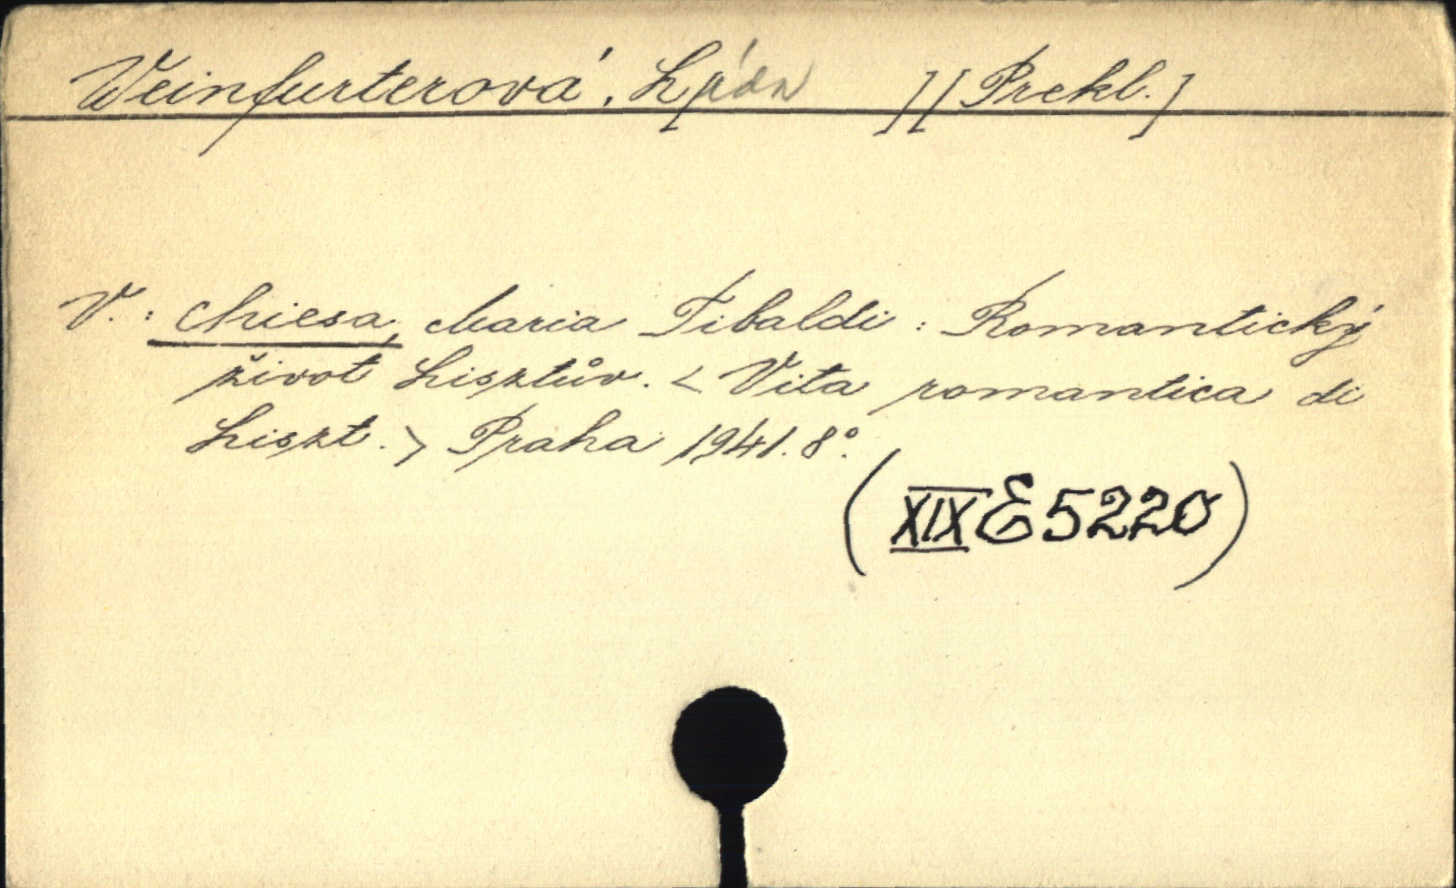 Weinfurterová, L[ída ] [Prekl.]
V.: Chiesa, Maria Tibaldi: Romantický
život Lisztův. < Vita romantica di
Liszt. > Praha 1941. 8°.
(XIX E 5220)